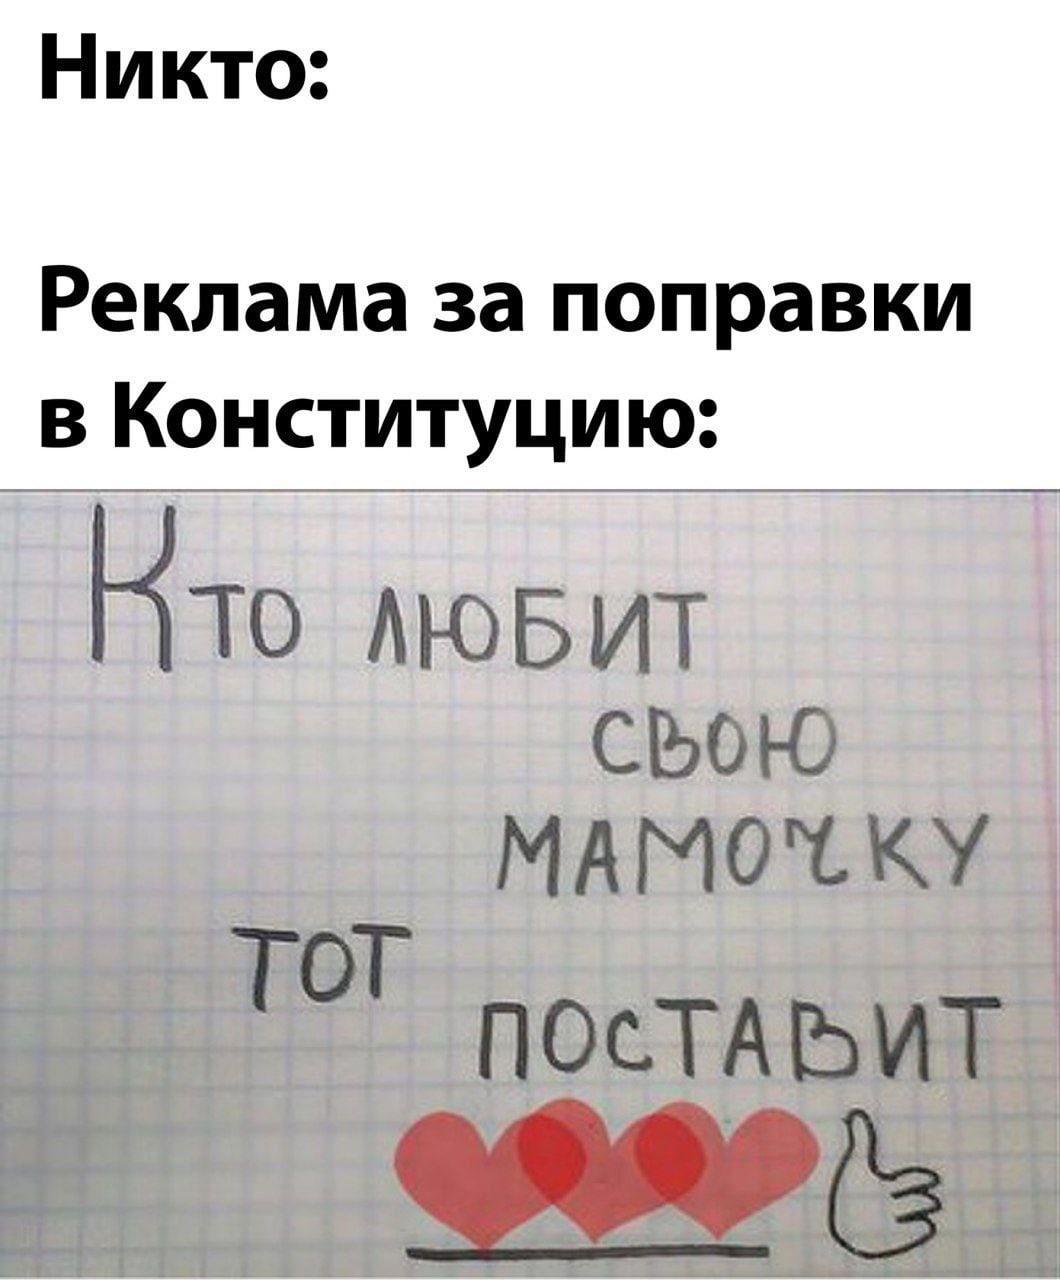 Никто:
Реклама за поправки
в Конституцию:
Кто любит
свою
мамочку
тот
поставит